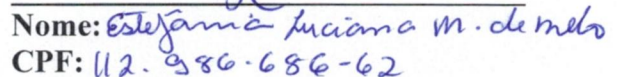 Nome: Estefânia Luciana M. de melo
CPF: 112.986.686-62